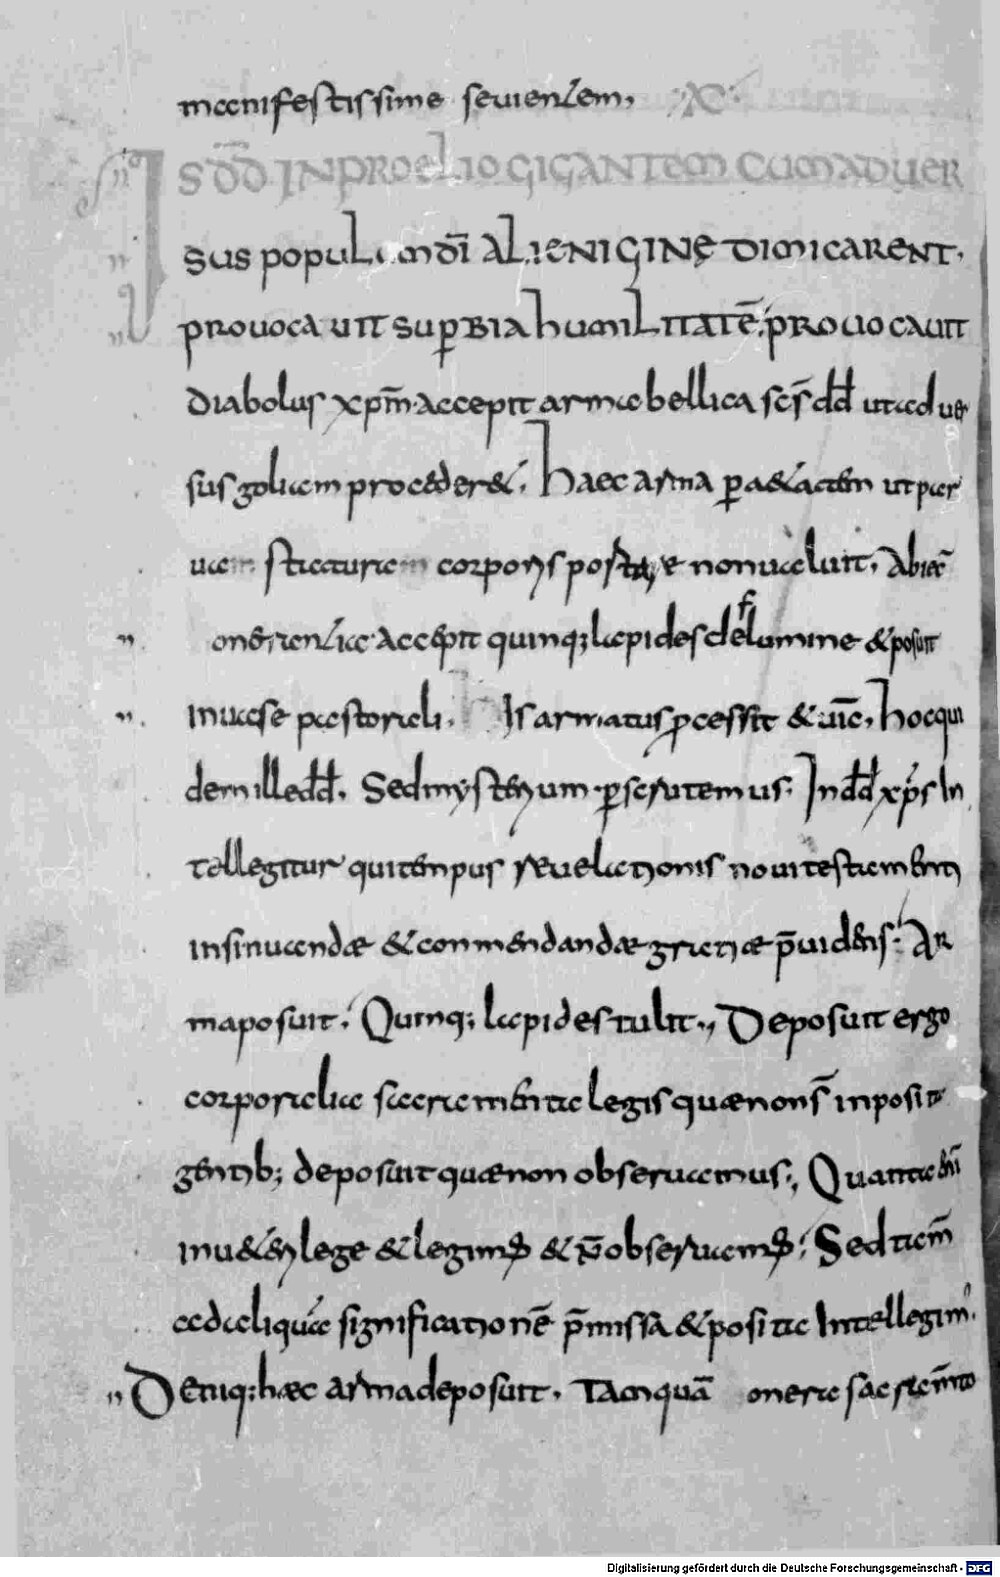 manifestissime sevientem, X
IS DD IN PROELIO GIGANTEM CUM ADVER
SUS POPULUM DI ALIENIGINę DIMICARENT.
PROVOCAVIT SUPBIA hUMILITATĒ. PROVOCAVIT
Diabolus xpm̄. Accepit arma bellica scs̄ dd̄ ut adver
sus goliam procederet. Haec arma p aetatem ut par
vam staturam corporis portare non valuit, Abiec̄
onerentia. Accepit quinq; lapides de flumine et posuit
in vase pastorali. Is armatus pcessit et vic̄, hoc qui
dem ille dd̄. Sed mysterium pscrutemus. In dd̄ xps̄ In
tellegitur qui tempus revelationis novi testamenti
insinuandæ et conmendandæ gratiæ p̄videns. Ar
ma posuit. Quinq; lapides tulit., Deposuit ergo
corporalia sacramenta legis quæ non s̄ inposita
gentib; deposuit quæ non observamus., Quanta eni
in veteri lege et legimus et n̄ observamus. Sed tam̄
ad aliquā significationē p̄missa et posita Intellegim'.
Deniq; hæc arma deposuit. Tamquā onera sacram̄to
Digitalisierung gefördert durch die Deutsche Forschungsgemeinschaft - DFG